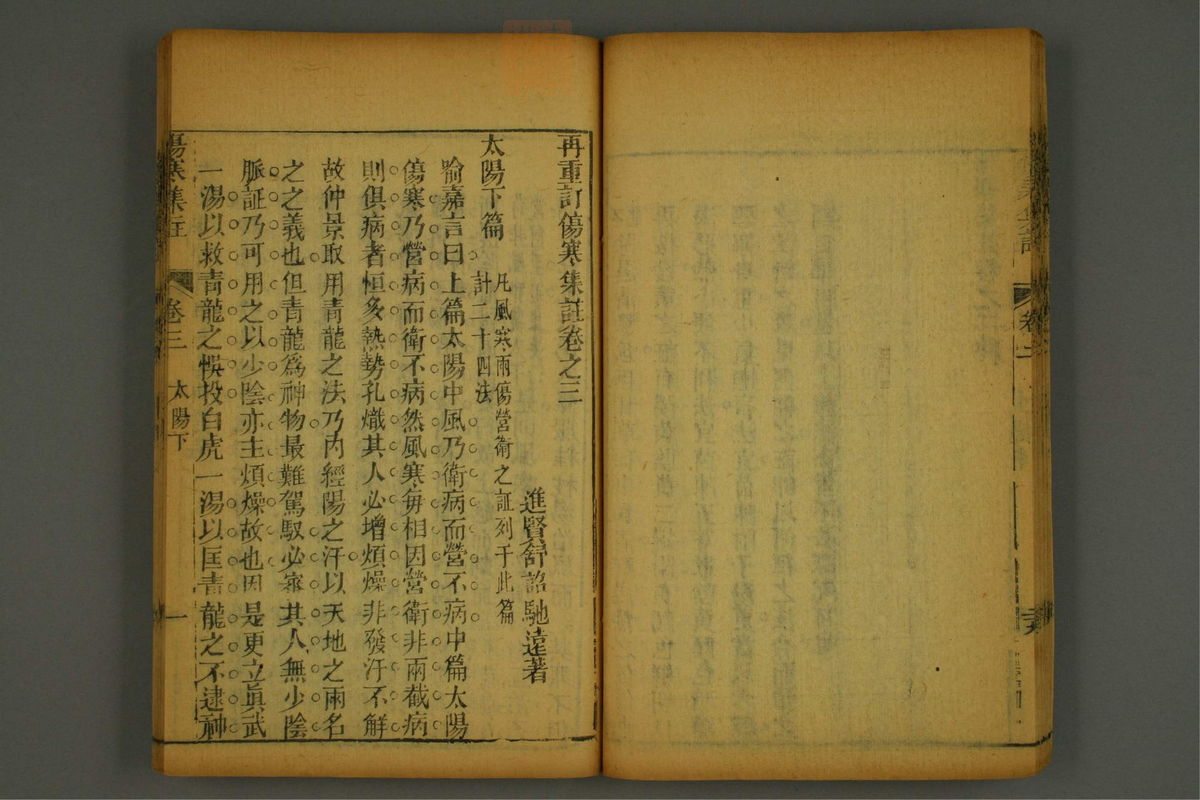 再重訂傷寒集註卷之三
進賢舒詔馳遠著
太陽下篇
凡風寒兩傷營衛之証列于此篇
計二十四法
喻嘉言曰上篇太陽中風乃衛病而營不病中篇太陽
傷寒乃營病而衛不病然風寒每相因營衛非兩截病
則俱病者恒多熱勢孔熾其人必增煩燥非發汗不解
故仲景取用青龍之法乃內經陽之汗以天地之雨名
之之義也但青龍爲神物最難駕馭必察其人無少陰
脈証乃可用之以少陰亦主煩燥故也因是更立眞武
一湯以救青龍之悞投白虎一湯以匡青龍之不逮神
傷寒集註
卷三
太陽下
一